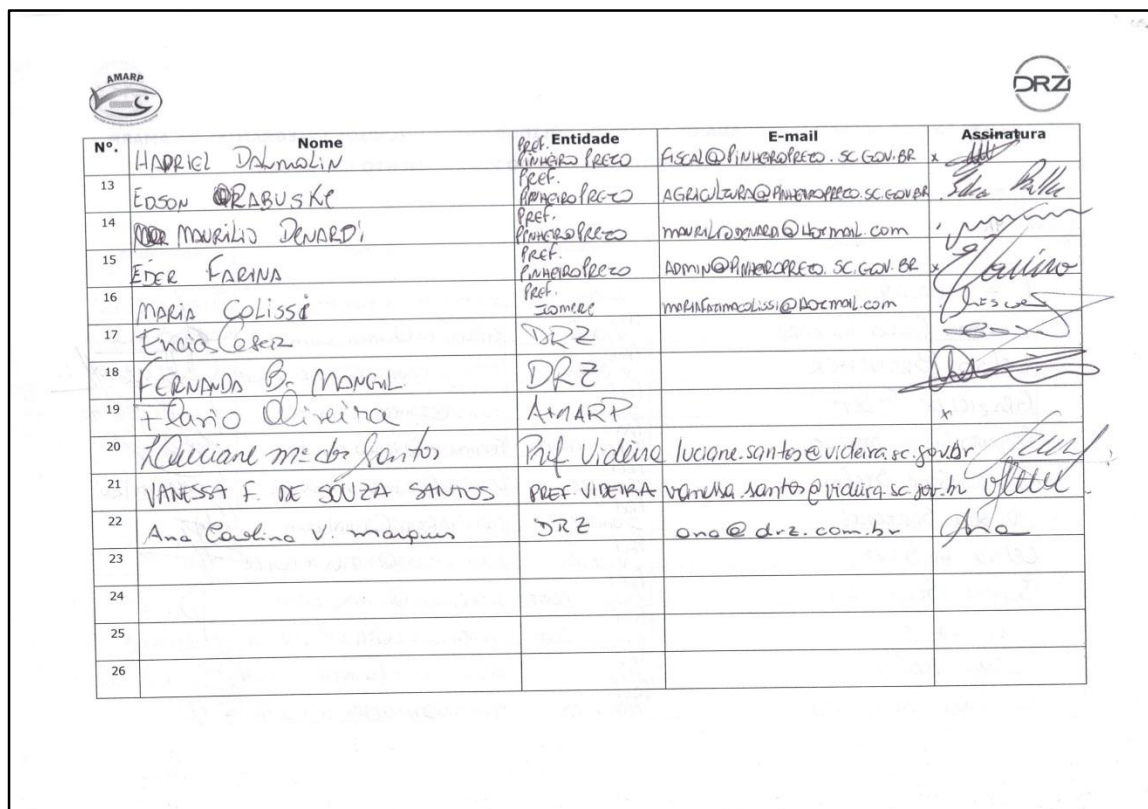 AMARP
DRZ
Nº. Nome Entidade E-mail Assinatura
HADRIEL DALMOLIN Pref. PINHEIRO PRETO FISCAL@PINHEIROPRETO.SC.GOV.BR x
13 EDSON RABUSKE Pref. PINHEIRO PRETO AGRICULTURA@PINHEIROPRETO.SC.GOV.BR
14 MAURILIO DENARDI Pref. PINHEIRO PRETO
15 EDER FARINA Pref. PINHEIRO PRETO ADMIN@PINHEIROPRETO.SC.GOV.BR x
16 MARIA COLISSI Pref. IOMERE MARIAFATIMACOLISSI@HOTMAIL.COM
17 DRZ
18 FERNANDA B. DRZ
19 Flavio Oliveira AMARP x
20 Luciane Mª dos Santos Pref Videira luciane.santos@videira.sc.gov.br
21 VANESSA F. DE SOUZA SANTOS PREF. VIDEIRA vanessa.santos@videira.sc.gov.br
22 Ana Carolina V. Marques DRZ ana@drz.com.br Ana
23
24
25
26